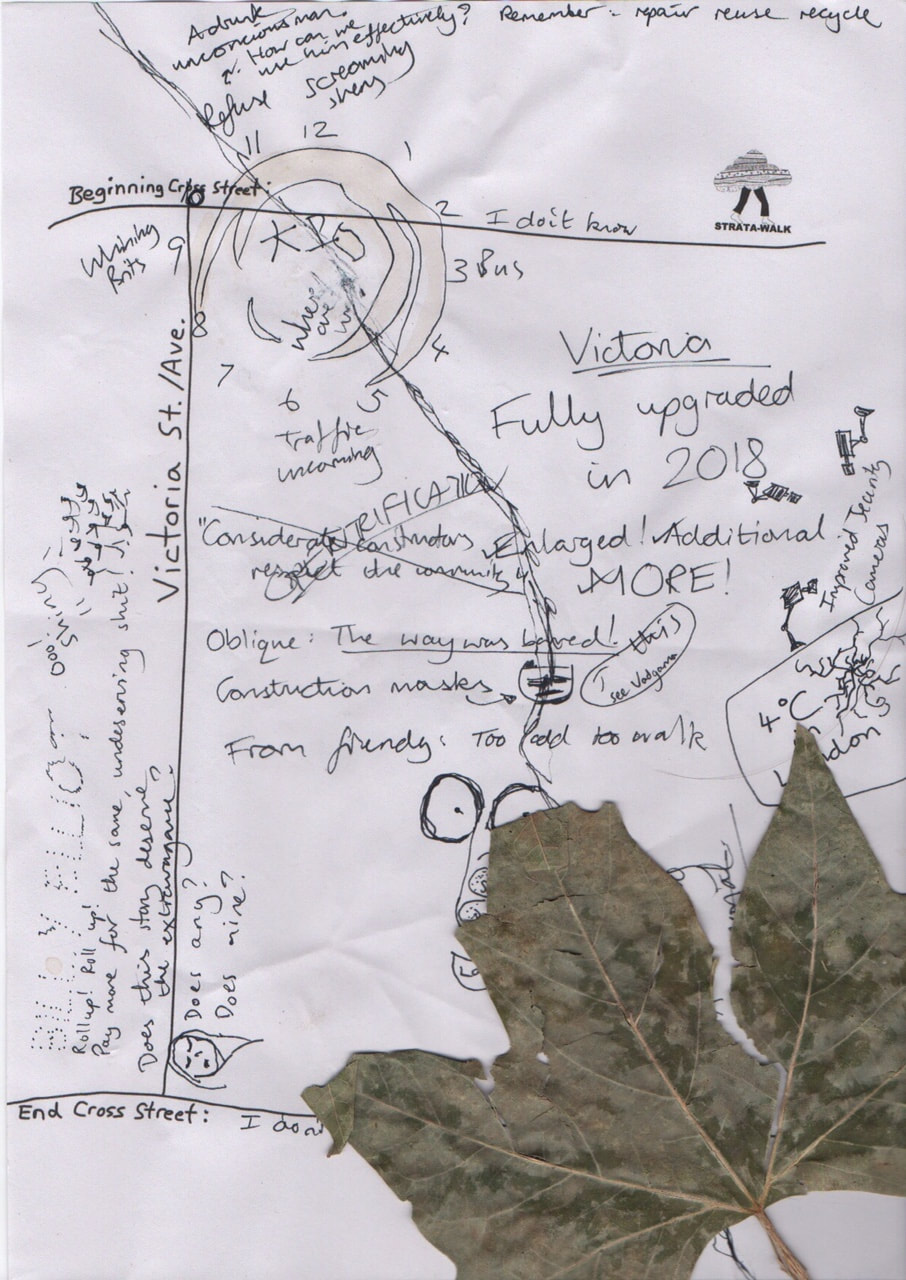 A drunk
unconcious man.
How can we
use him effectively?
Remember: repair reuse recycle
Refuse
screaming
sirens
11
12
1
Beginning Cross Street:
2
I don't know
STRATA-WALK
9
3 Bus
Where
are
we
8
4
7
6
5
Traffic
incoming
Victoria St./Ave.
Victoria
Fully upgraded
in 2018
"Considerate constructors
respect the community"
Enlarged! Additional
MORE!
Improved Security
Cameras
Oblique: The way was barred!
this
see Vodgama
Construction masks
From friendy: Too odd too walk
4°C
ooo! Shiny!
BILLY ELLIOT
Roll up! Roll up!
Pay more for the same, undeserving shit!
Does this story deserve
the extravagance?
Does any?
Does mine?
End Cross Street:
I don'